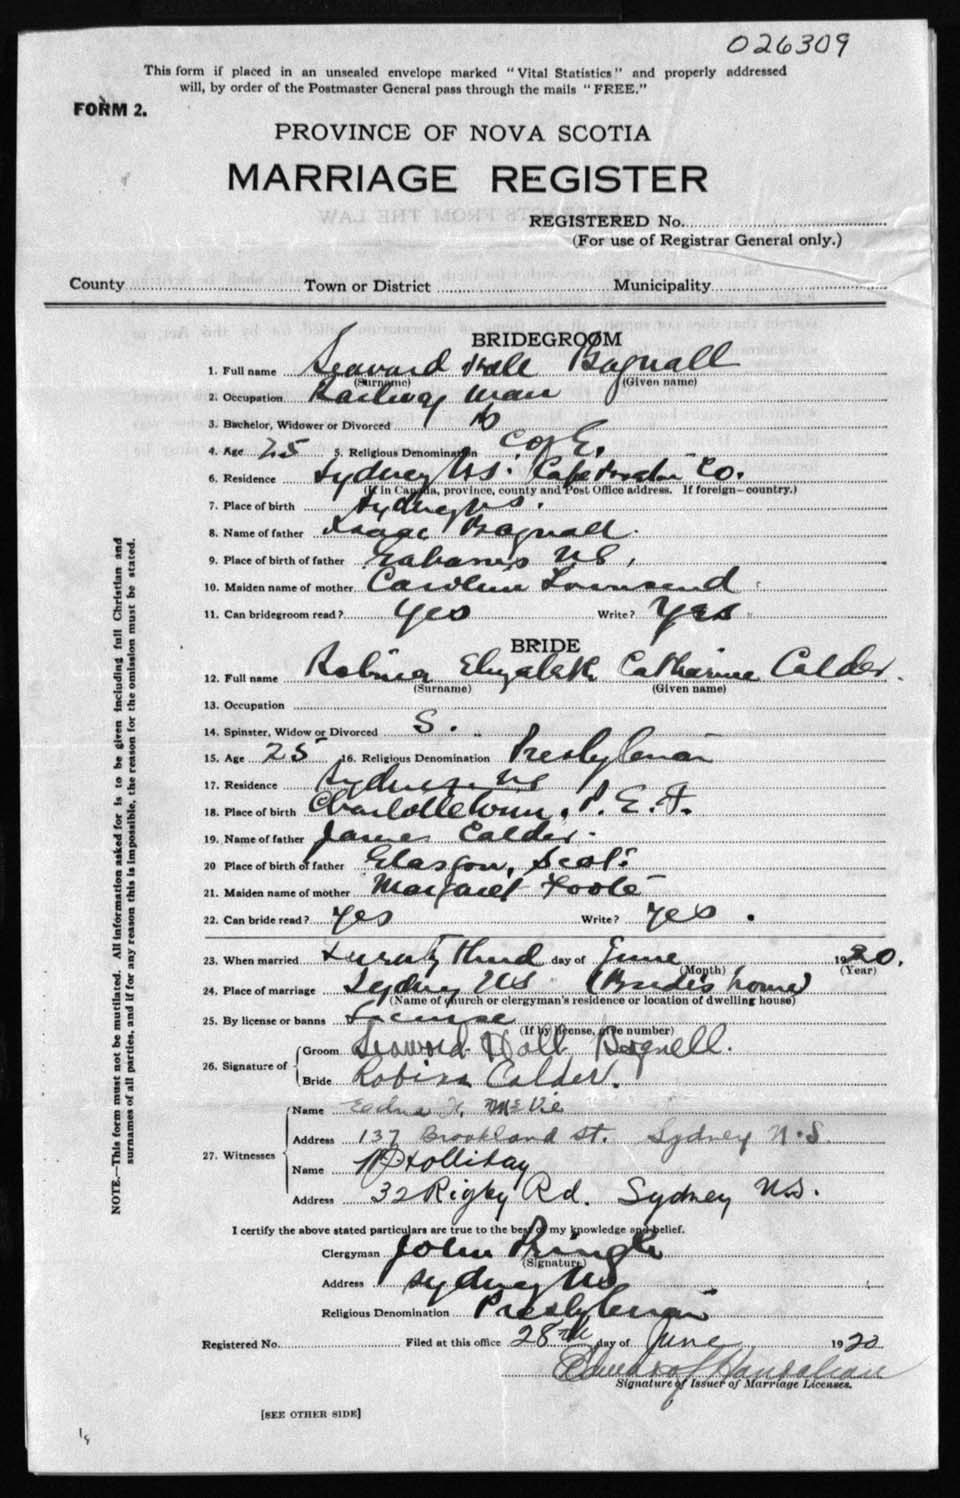 026309
This form if placed in an unsealed envelope marked "Vital Statistics" and properly addressed
will, by order of the Postmaster General pass through the mails "FREE."
FORM 2.
PROVINCE OF NOVA SCOTIA
MARRIAGE REGISTER
REGISTERED No.
(For use of Registrar General only.)
County Town or District Municipality
BRIDEGROOM
1. Full name Seaward Hall Bagnall
(Surname) (Given name)
2. Occupation Railway man
3. Bachelor, Widower or Divorced B
4. Age 25 5. Religious Denomination C of E.
6. Residence Sydney NS. Cape Breton Co.
(If in Canada, province, county and Post Office address. If foreign—country.)
7. Place of birth Sydney NS.
8. Name of father Isaac Bagnall
9. Place of birth of father Gabarus NS,
10. Maiden name of mother Caroline Townsend
11. Can bridegroom read? Yes Write? Yes
BRIDE
12. Full name Robina Elizabeth Catharine Calder.
(Surname) (Given name)
13. Occupation
14. Spinster, Widow or Divorced S.
15. Age 25 16. Religious Denomination Presbyterian
17. Residence Sydney NS
18. Place of birth Charlottetown, P. E. I.
19. Name of father James Calder.
20 Place of birth of father Glasgow, Scot.
21. Maiden name of mother Margaret Foote
22. Can bride read? Yes Write? Yes.
23. When married Twenty third day of June 1920.
(Month) (Year)
24. Place of marriage Sydney NS (Brides home)
(Name of church or clergyman's residence or location of dwelling house)
25. By license or banns License
(If by license, give number)
26. Signature of Groom Seaword Hall Bagnell.
Bride Robina Calder.
27. Witnesses
Name McVie
Address 137 Brookland St. Sydney N.S.
Name Holliday
Address 32 Rigby Rd. Sydney N.S.
I certify the above stated particulars are true to the best of my knowledge and belief.
Clergyman John Pringle
(Signature)
Address Sydney NS
Religious Denomination Presbyterian
Registered No. Filed at this office 28th day of June 1920
Signature of Issuer of Marriage Licenses.
[SEE OTHER SIDE]
NOTE.—This form must not be mutilated. All information asked for is to be given including full Christian and
surnames of all parties, and if for any reason this is impossible, the reason for the omission must be stated.